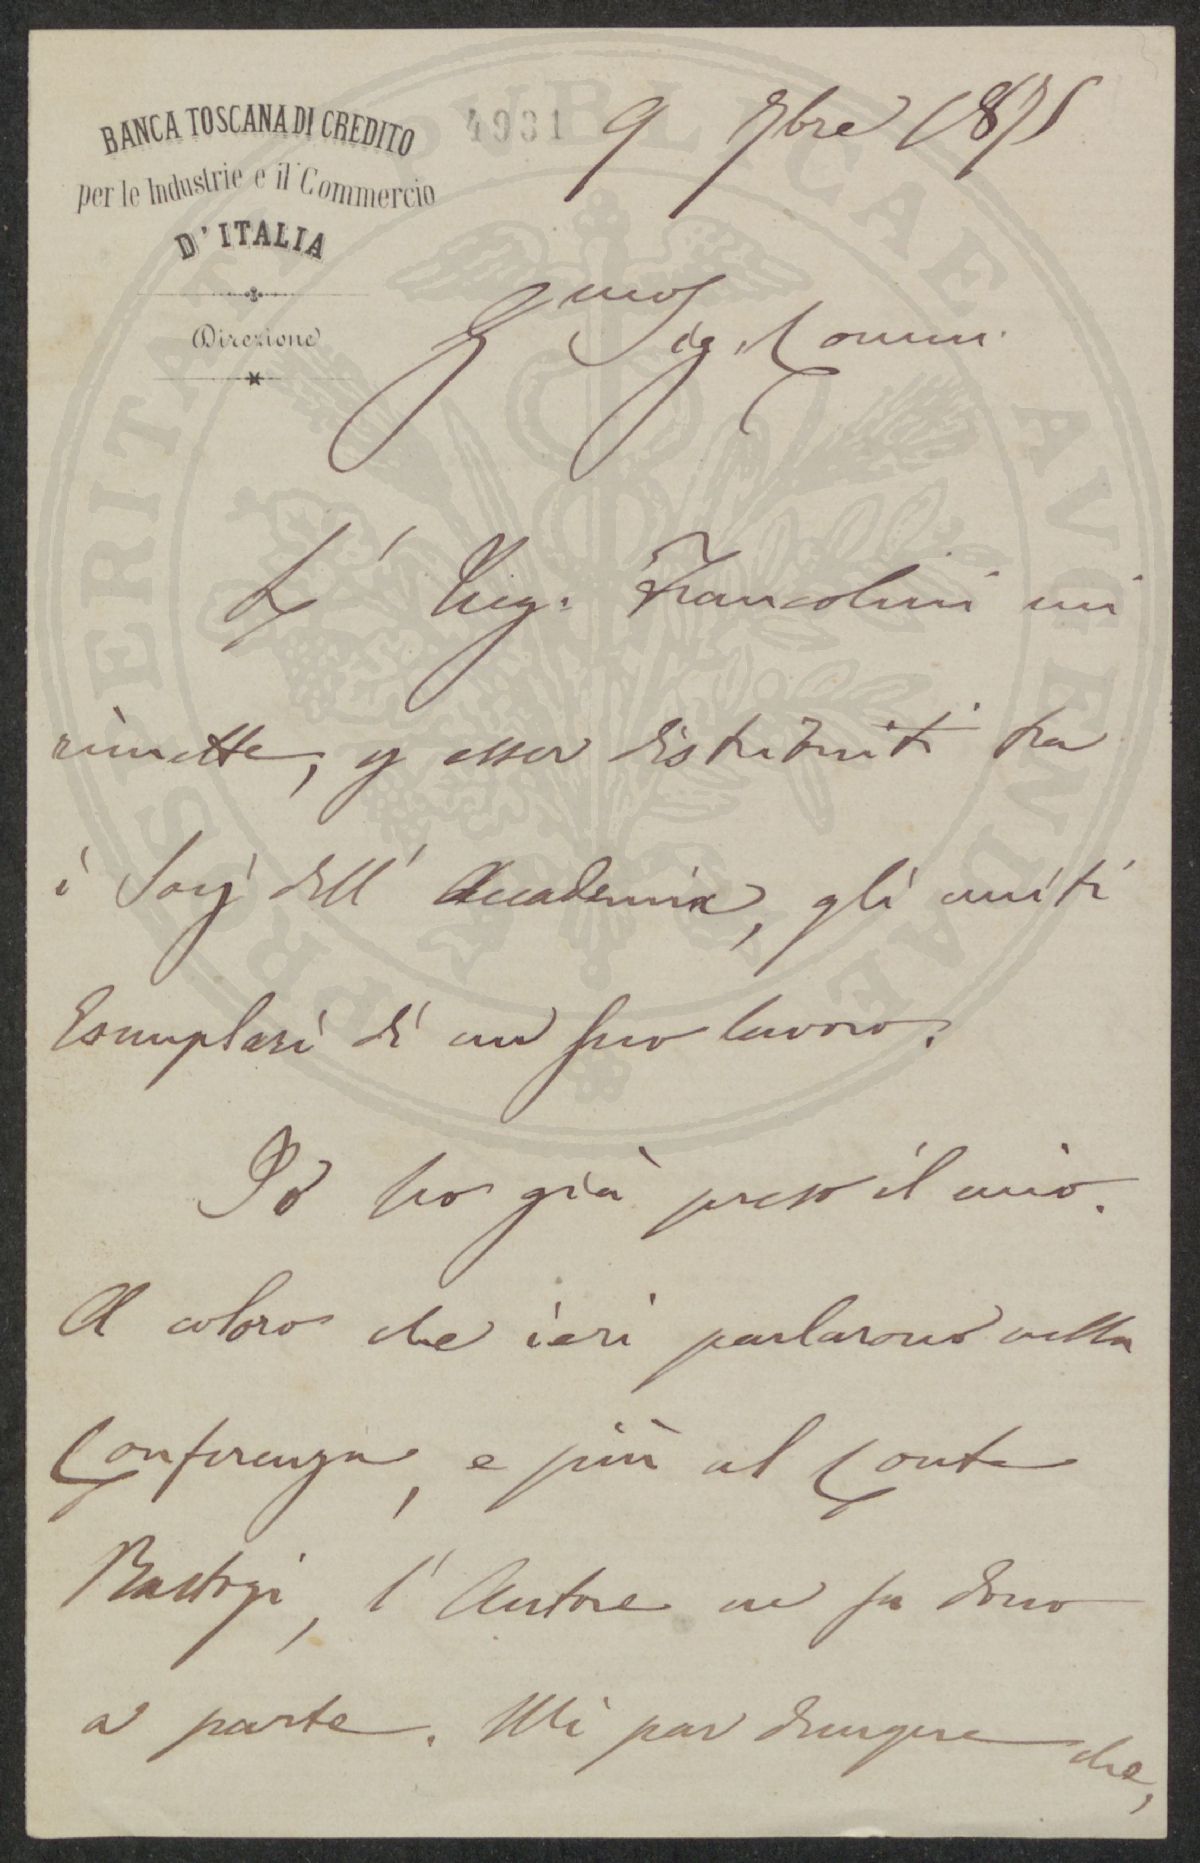 BANCA TOSCANA DI CREDITO
per le Industrie e il Commercio
D'ITALIA
Direzione
4931
9 7bre 1875
Sig. Comm.
L' Ing. Francolini mi
rimette, p esser distribuiti tra
i Socj dell' Accademia, gli uniti
Esemplari di un suo lavoro.
Io ho già preso il mio.
A coloro che ieri parlarono nella
Conferenza, e più al Conte
Bastogi, l' Autore ne fa dono
a parte. Mi par dunque che,
PROSPERITATI PVBLICAE AVGENDAE